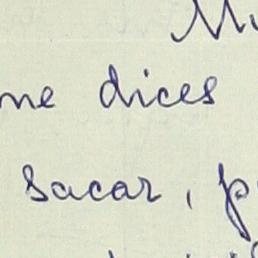 me dices
sacar,